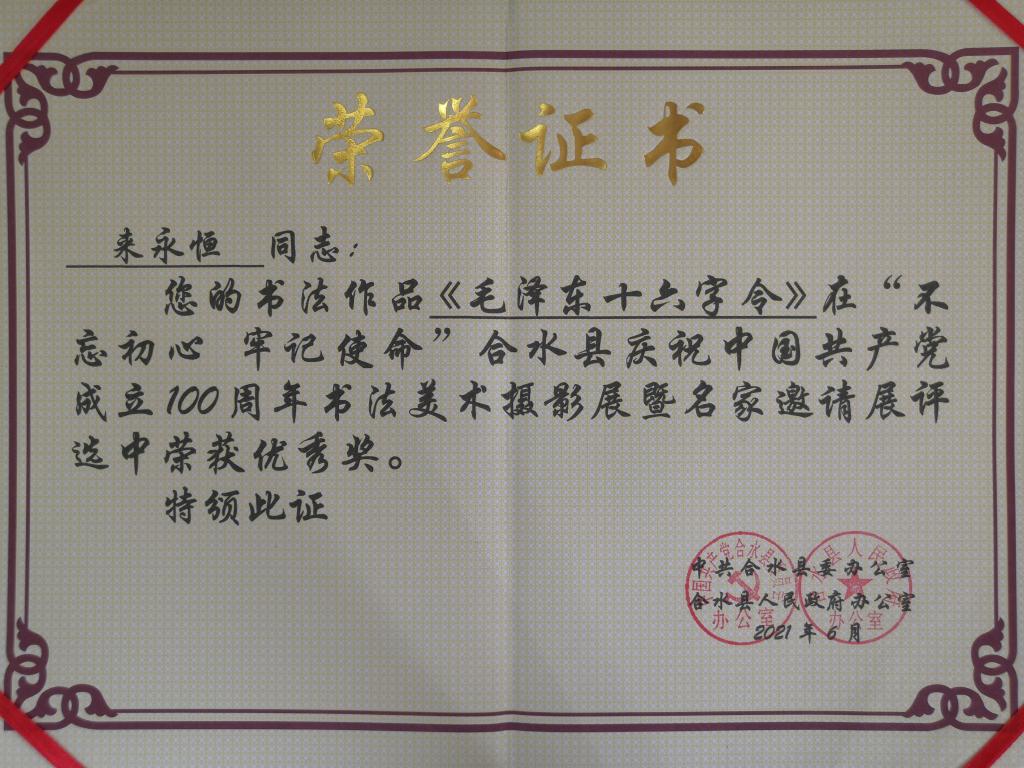 荣誉证书
来永恒 同志:
您的书法作品《毛泽东十六字令》在“不
忘初心 牢记使命”合水县庆祝中国共产党
成立100周年书法美术摄影展暨名家邀请展评
选中荣获优秀奖。
特颁此证
中共合水县委办公室
合水县人民政府办公室
2021年6月
中国共产党合水县委员会
办公室
合水县人民政府
办公室